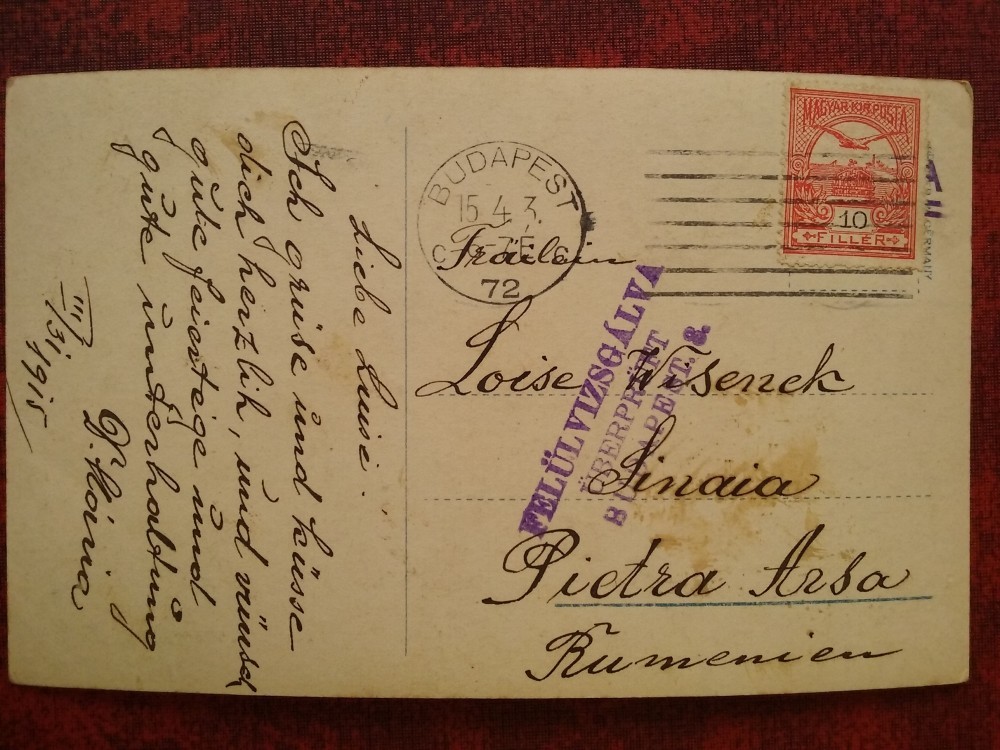 Liebe Luise!
Ich grüse und küsse
dich herzlih, und wünsch
gute feiertege und
gute unterhaltung
D. Mária
III/31 1915
BUDAPEST
15 4. 3.
72
MAGYAR KIR. POSTA
10
FILLÉR
GERMANY
Fräulein
Loise Wisenek
Sinaia
Pietra Arsa
Rumenien
FELÜLVIZSGÁLVA
ÜBERPRÜFT
BUDAPEST. 8.